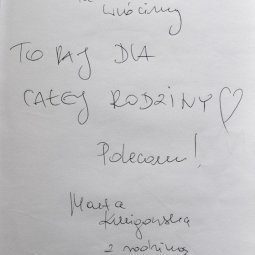 wrócimy
TO RAJ DLA
CAŁEJ RODZINY ♡
Polecam!
Marta
z rodziną